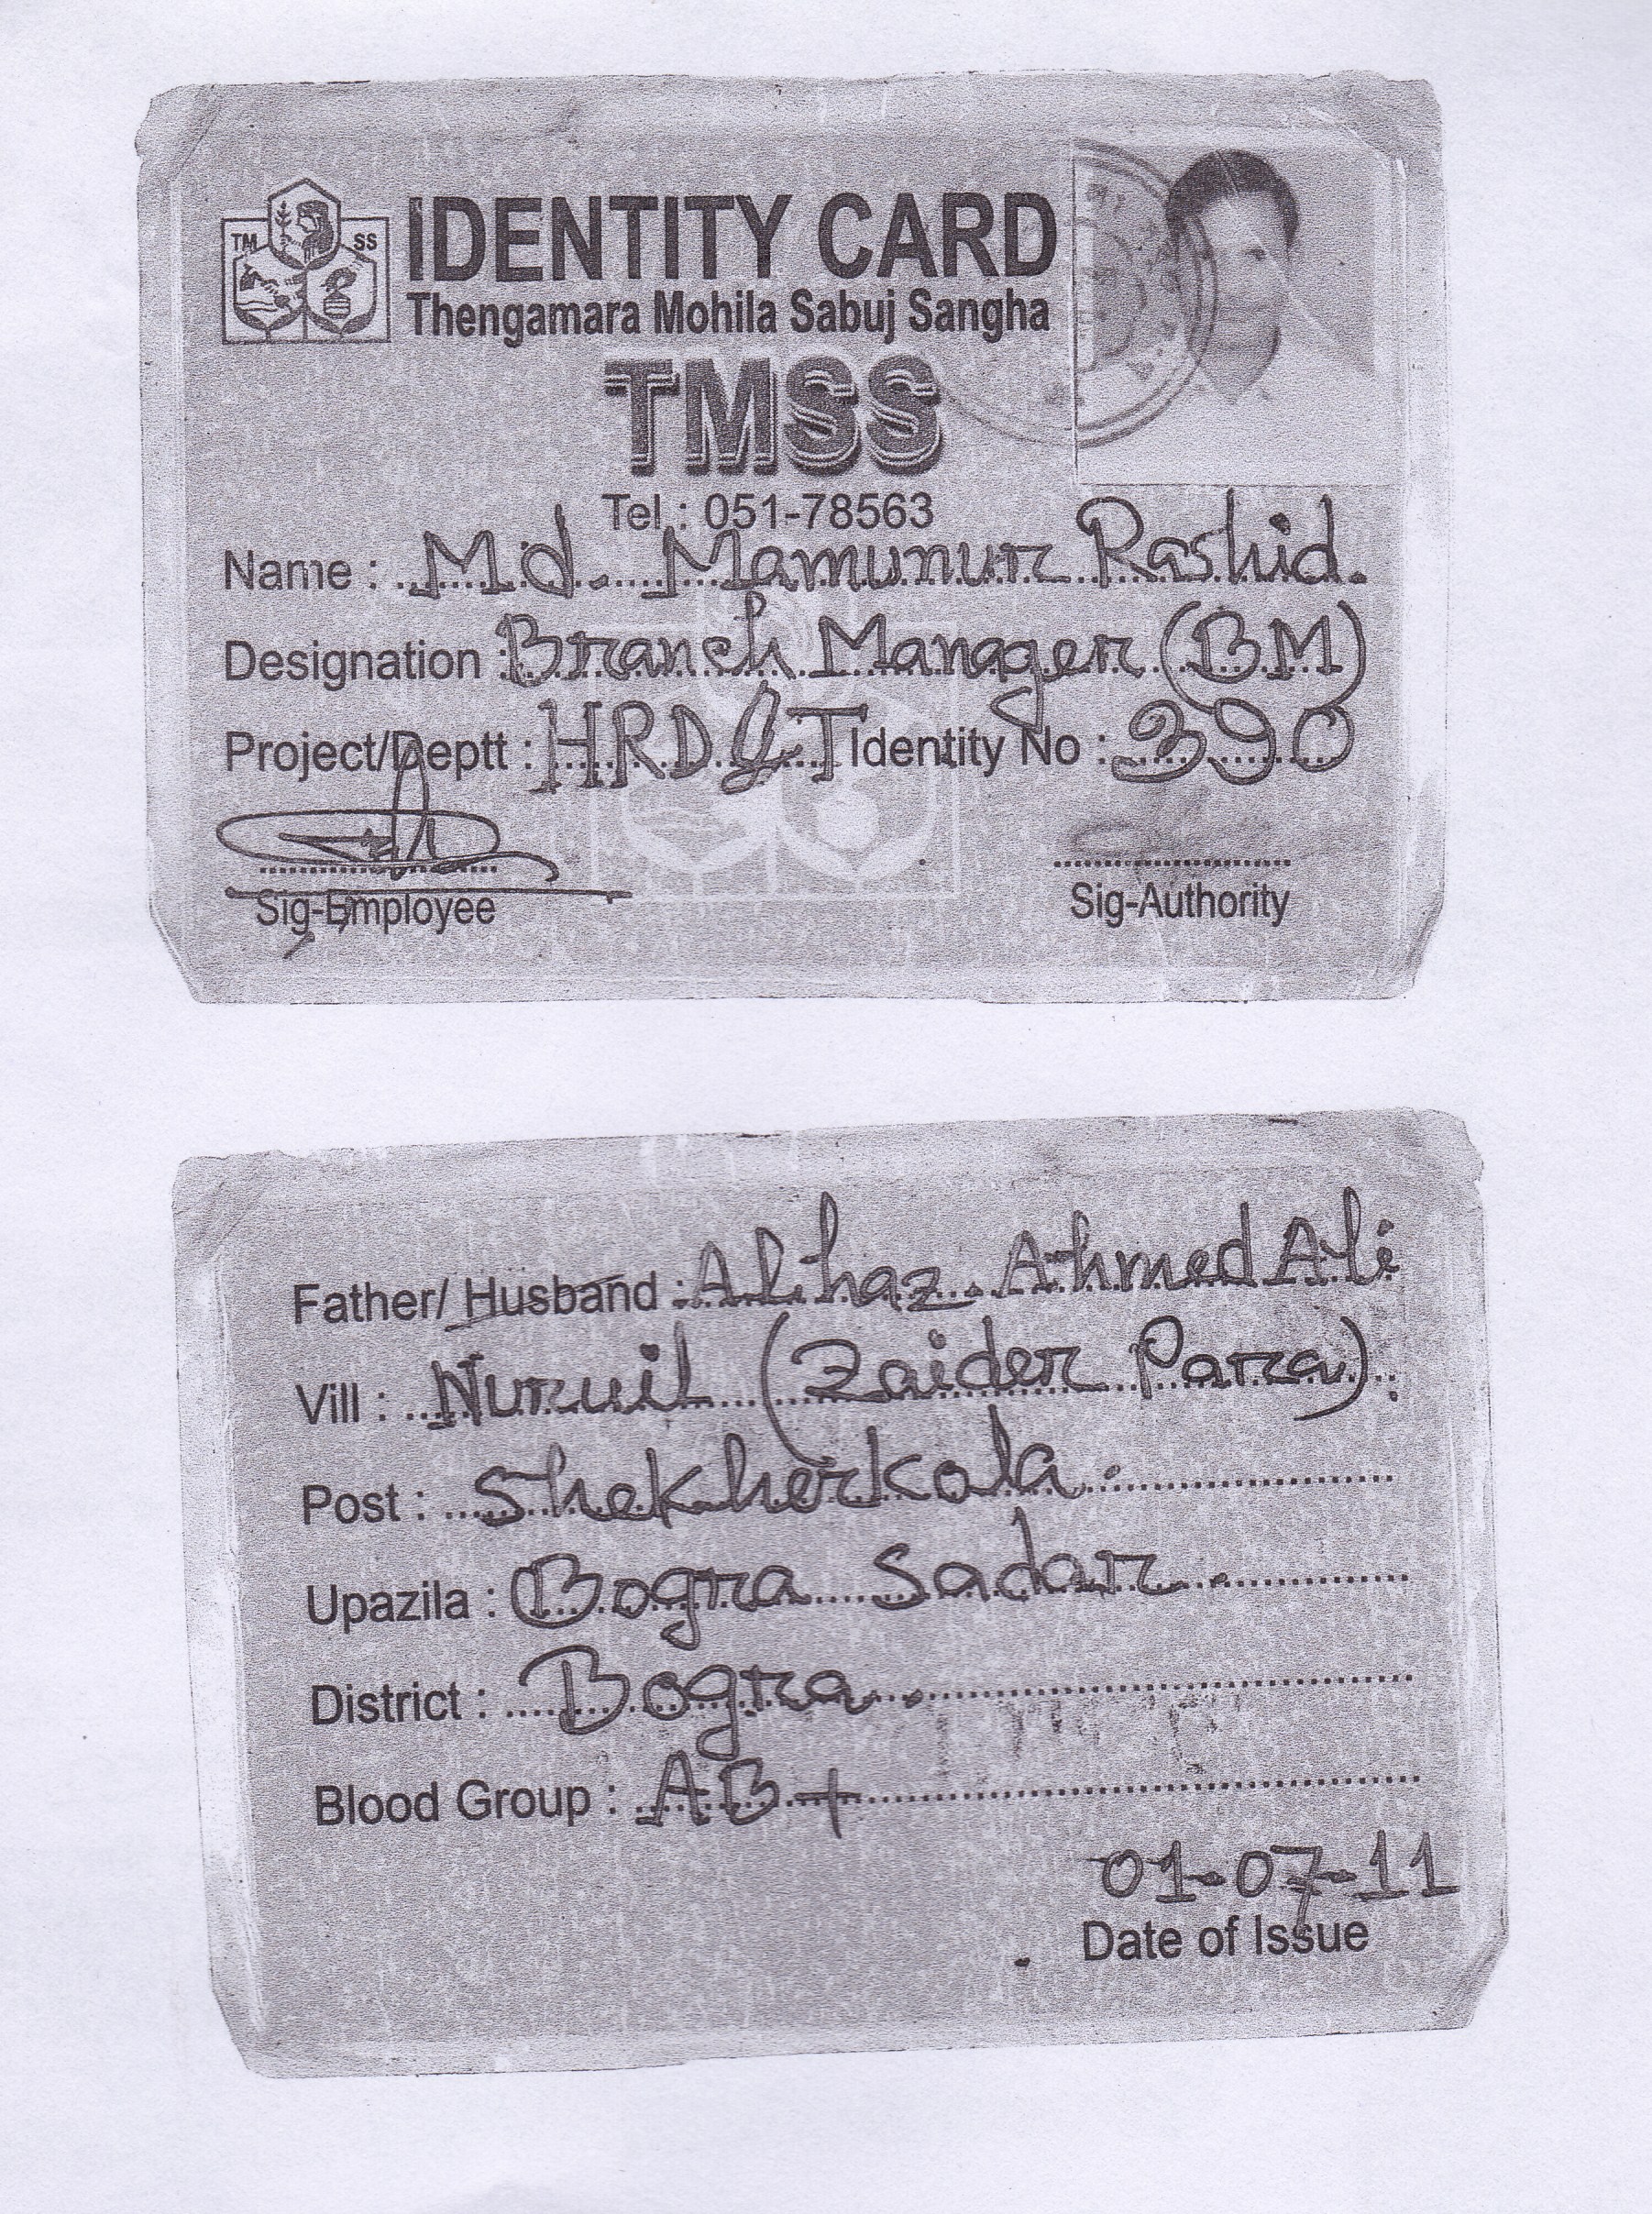 TM SS
IDENTITY CARD
Thengamara Mohila Sabuj Sangha
TMSS
Tel : 051-78563
Name : Md. Mamunur Rashid.
Designation : Branch Manager (BM)
Project/Deptt : HRD & T Identity No : 390
Sig-Employee
Sig-Authority
Father/ Husband : Alhaz. Ahmed Ali
Vill : Nuruil (Zaider Para).
Post : Shekherkola.
Upazila : Bogra Sadar.
District : Bogra.
Blood Group : AB+
01-07-11
Date of Issue